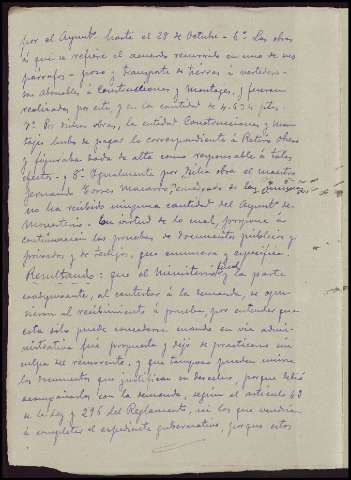 por el Ayunt.º hasta el 28 de Octubre - 6º Las obras
á que se refiere el acuerdo recurrido en uno de sus
párrafos - pozo y transporte de tierras á vertedero -
son abonables á Construcciones y Montajes, y fueron
realizadas por esta, y en la cantidad de 4.634 pts.
7º Por dichas obras, la entidad Construcciones y Mon-
tajes hubo de pagar lo correspondiente á Retiro Obrero
y figuraba dada de alta como responsable á tales
efectos - y 8º Igualmente por dicha obra el maestro
Fernando Torres Macarro, encargado de las
no ha recibido ninguna cantidad del Ayunt.º de
Monesterio - En virtud de lo cual, propuso á
continuación las pruebas de documentos públicos y
privados y de testigos, que enumera y especifica.
Resultando: que el Ministerio fiscal y la parte
coadyuvante, al contestar á la demanda, se opu-
sieron al recibimiento á prueba, por entender que
esta sólo puede concederse cuando en vía admi-
nistrativa fué propuesta y dejó de practicarse sin
culpa del recurrente, y que tampoco pueden unirse
los documentos que justifican su derecho, porque debió
acompañarlos con la demanda, según el artículo 43
de la ley y 296 del Reglamento, ni los que vendrían
á completar el expediente gubernativo, porque estos